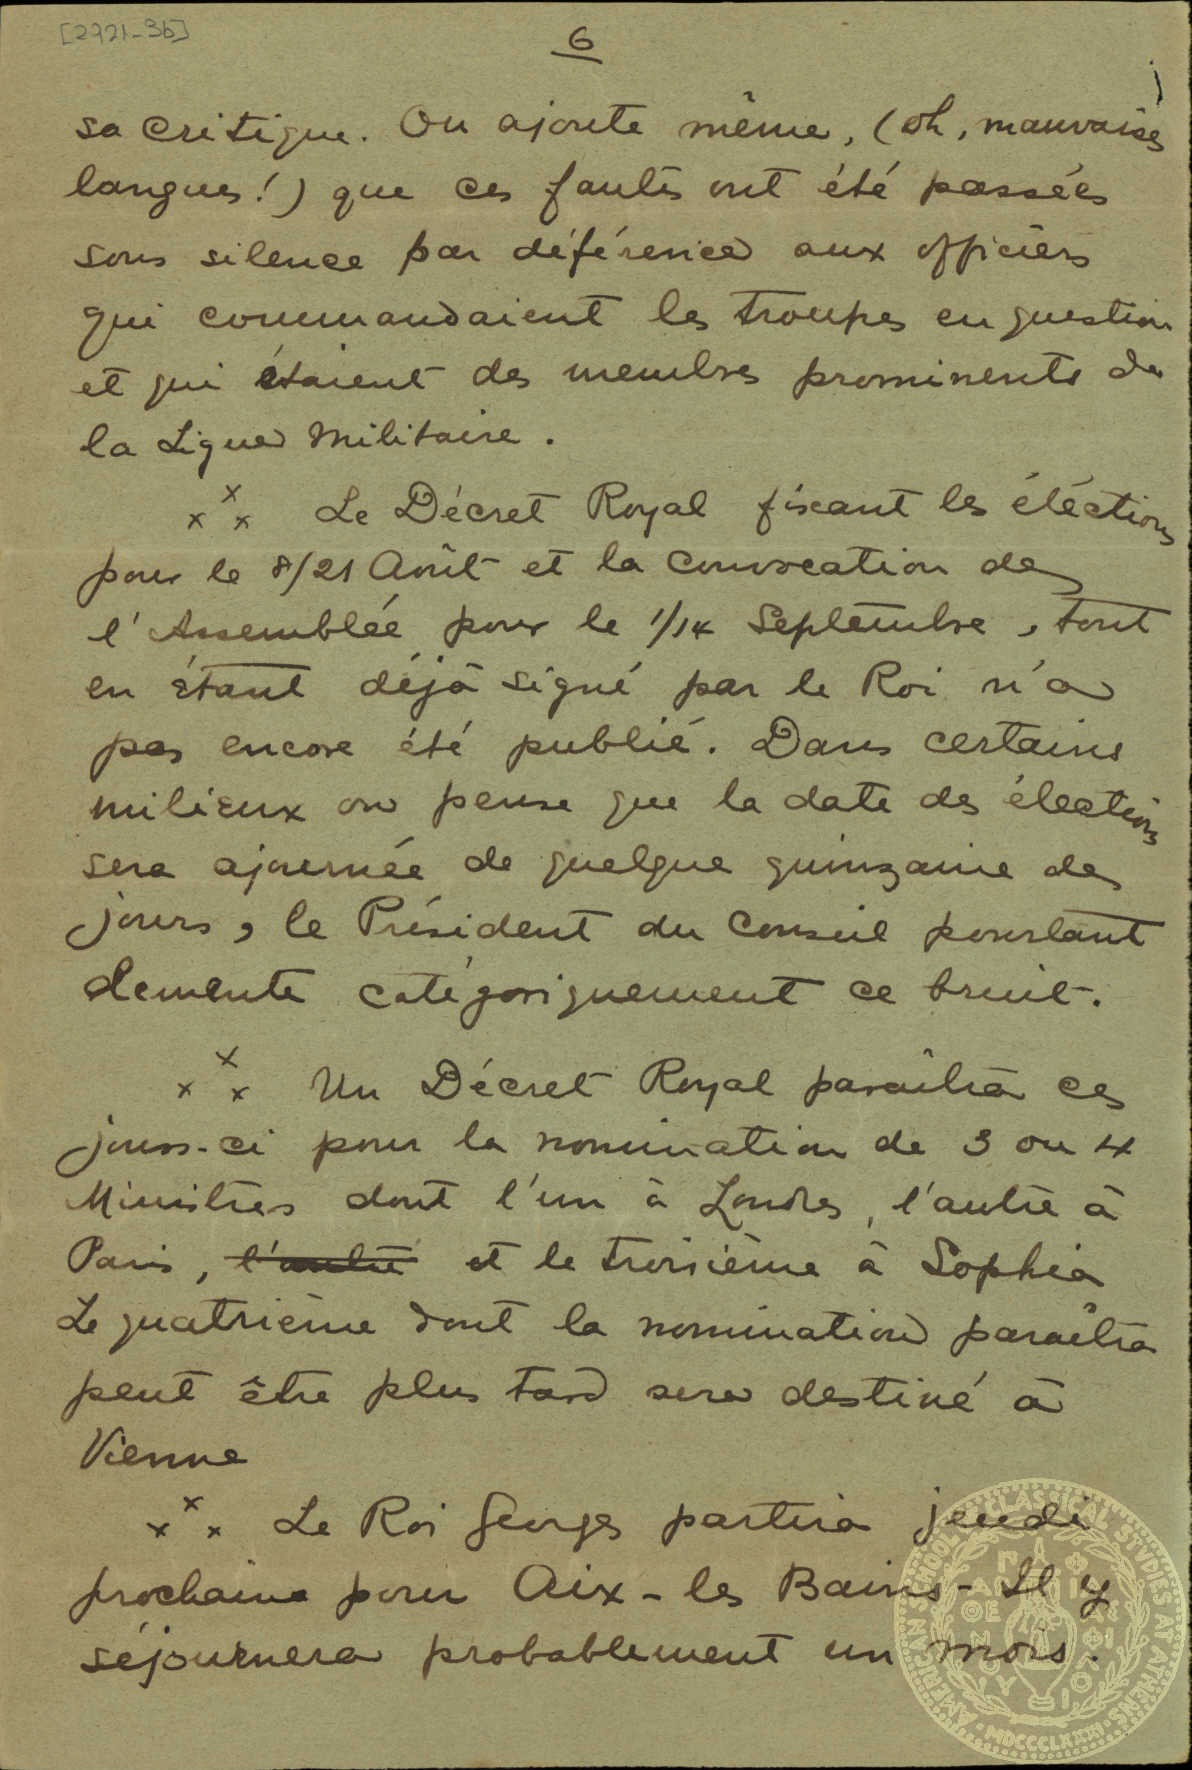 [2721-36]
6
sa critique. On ajoute même, (oh, mauvaises
langues!) que ces fautes ont été passées
sous silence par déférence aux officiers
qui commandaient les troupes en question
et qui étaient des membres prominents de
la Ligue Militaire.
x x x Le Décret Royal fixant les éléctions
pour le 8/21 Août et la convocation de
l'Assemblée pour le 1/14 Septembre, tout
en étant déjà signé par le Roi n'a
pas encore été publié. Dans certains
milieux on pense que la date des élections
sera ajournée de quelque quinzaine de
jours, le Président du Conseil pourtant
demente catégoriquement ce bruit.
x x x Un Décret Royal paraîtra ces
jours-ci pour la nomination de 3 ou 4
Ministres dont l'un à Londres, l'autre à
Paris, l'autre et le troisième à Sophia
Le quatrième dont la nomination paraîtra
peut être plus tard sera destiné à
Vienne
x x x Le Roi Georges partira jeudi
prochain pour Aix-les Bains- Il y
séjournera probablement un mois.
AMERICAN SCHOOL OF CLASSICAL STUDIES AT ATHENS
MDCCCLXXXI